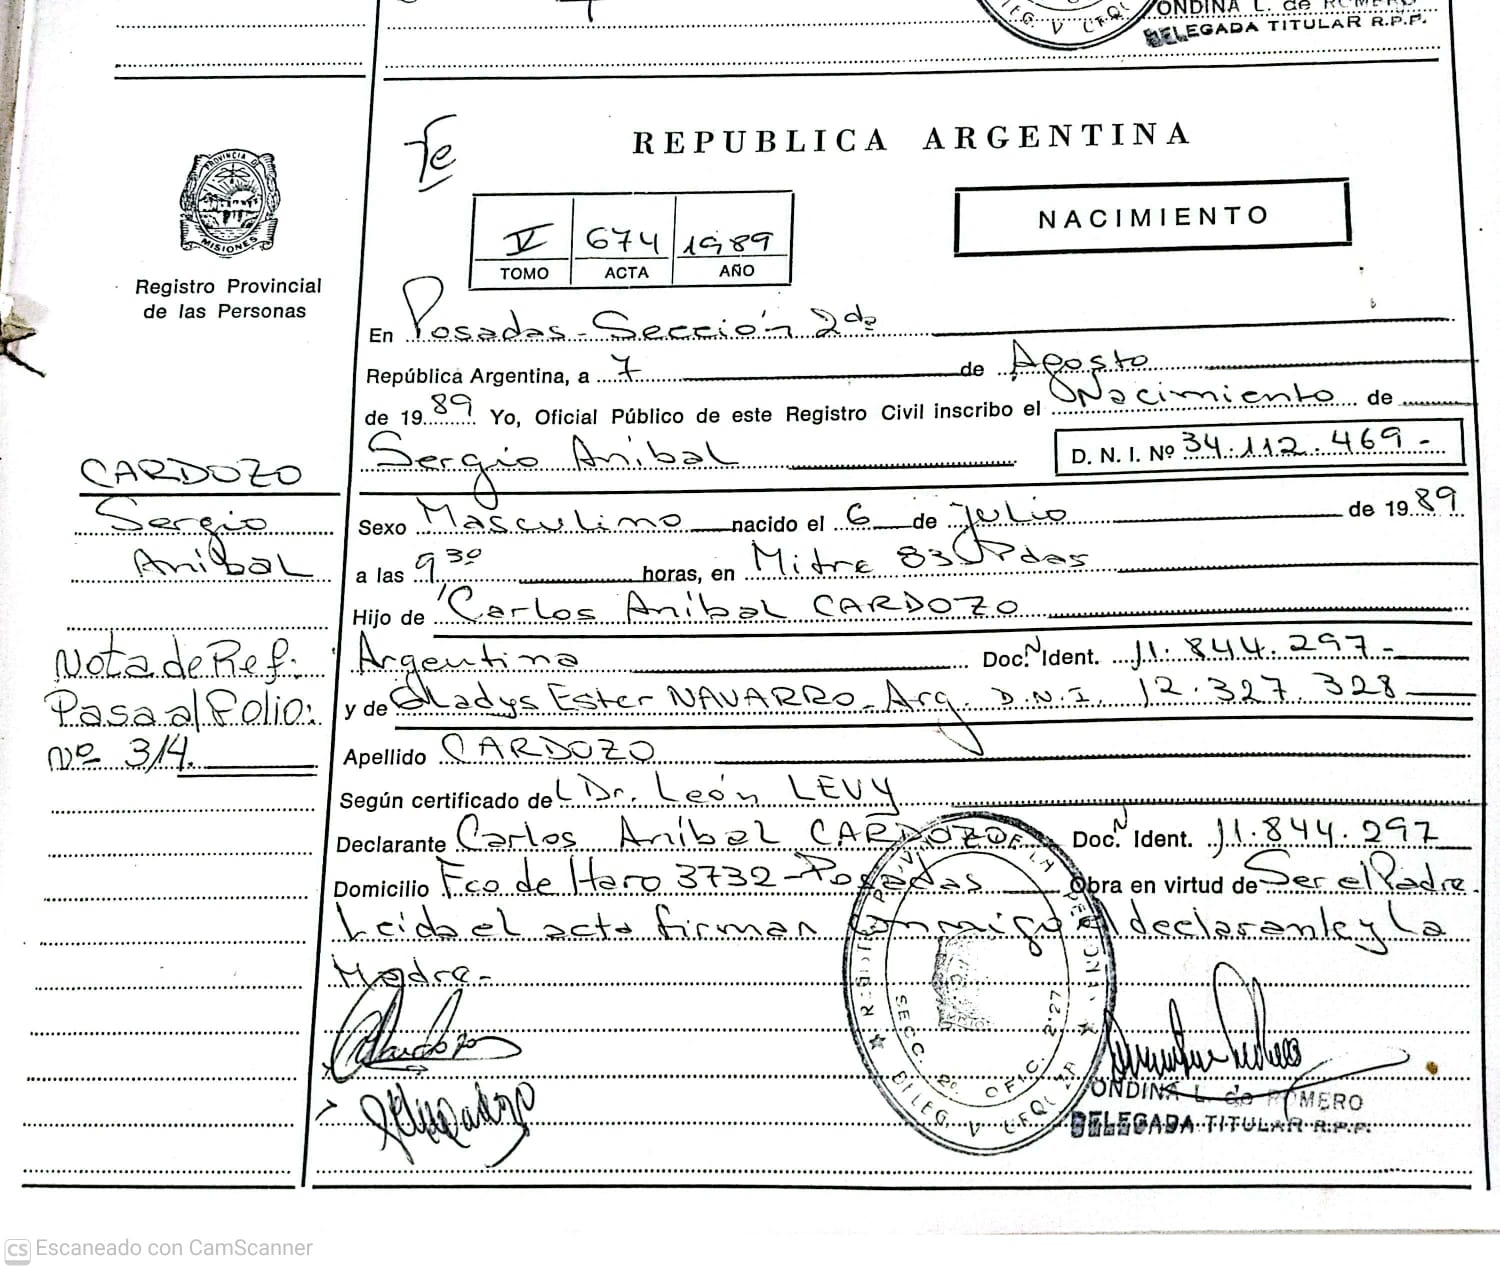 ONDINA L. de ROMERO
DELEGADA TITULAR R.P.P.
REPUBLICA ARGENTINA
NACIMIENTO
V 674 1989
TOMO ACTA AÑO
PROVINCIA DE
MISIONES
Registro Provincial
de las Personas
En Posadas - Sección 2da
República Argentina, a 7 de Agosto
de 1989 Yo, Oficial Público de este Registro Civil inscribo el Nacimiento de
Sergio Aníbal D. N. I. Nº 34.112.469-
CARDOZO
Sergio
Aníbal
Sexo Masculino nacido el 6 de Julio de 1989
a las 9 30 horas, en Mitre 83 Pdas
Hijo de Carlos Aníbal CARDOZO
Argentina Doc. N Ident. 11.844.297-
y de Gladys Ester NAVARRO - Arg. D.N.I. 12.327.328
Nota de Ref:
Pasa al Folio:
Nº 314.
Apellido CARDOZO
Según certificado del Dr. León LEVY
Declarante Carlos Aníbal CARDOZO Doc. N Ident. 11.844.297
Domicilio Fco de Haro 3732 - Posadas Obra en virtud de Ser el Padre.
Leida el acta firman conmigo el declarante y La
Madre.-
SECC. 2º OFIC. 2'27
ONDINA L. de ROMERO
DELEGADA TITULAR R.P.P.
CS Escaneado con CamScanner